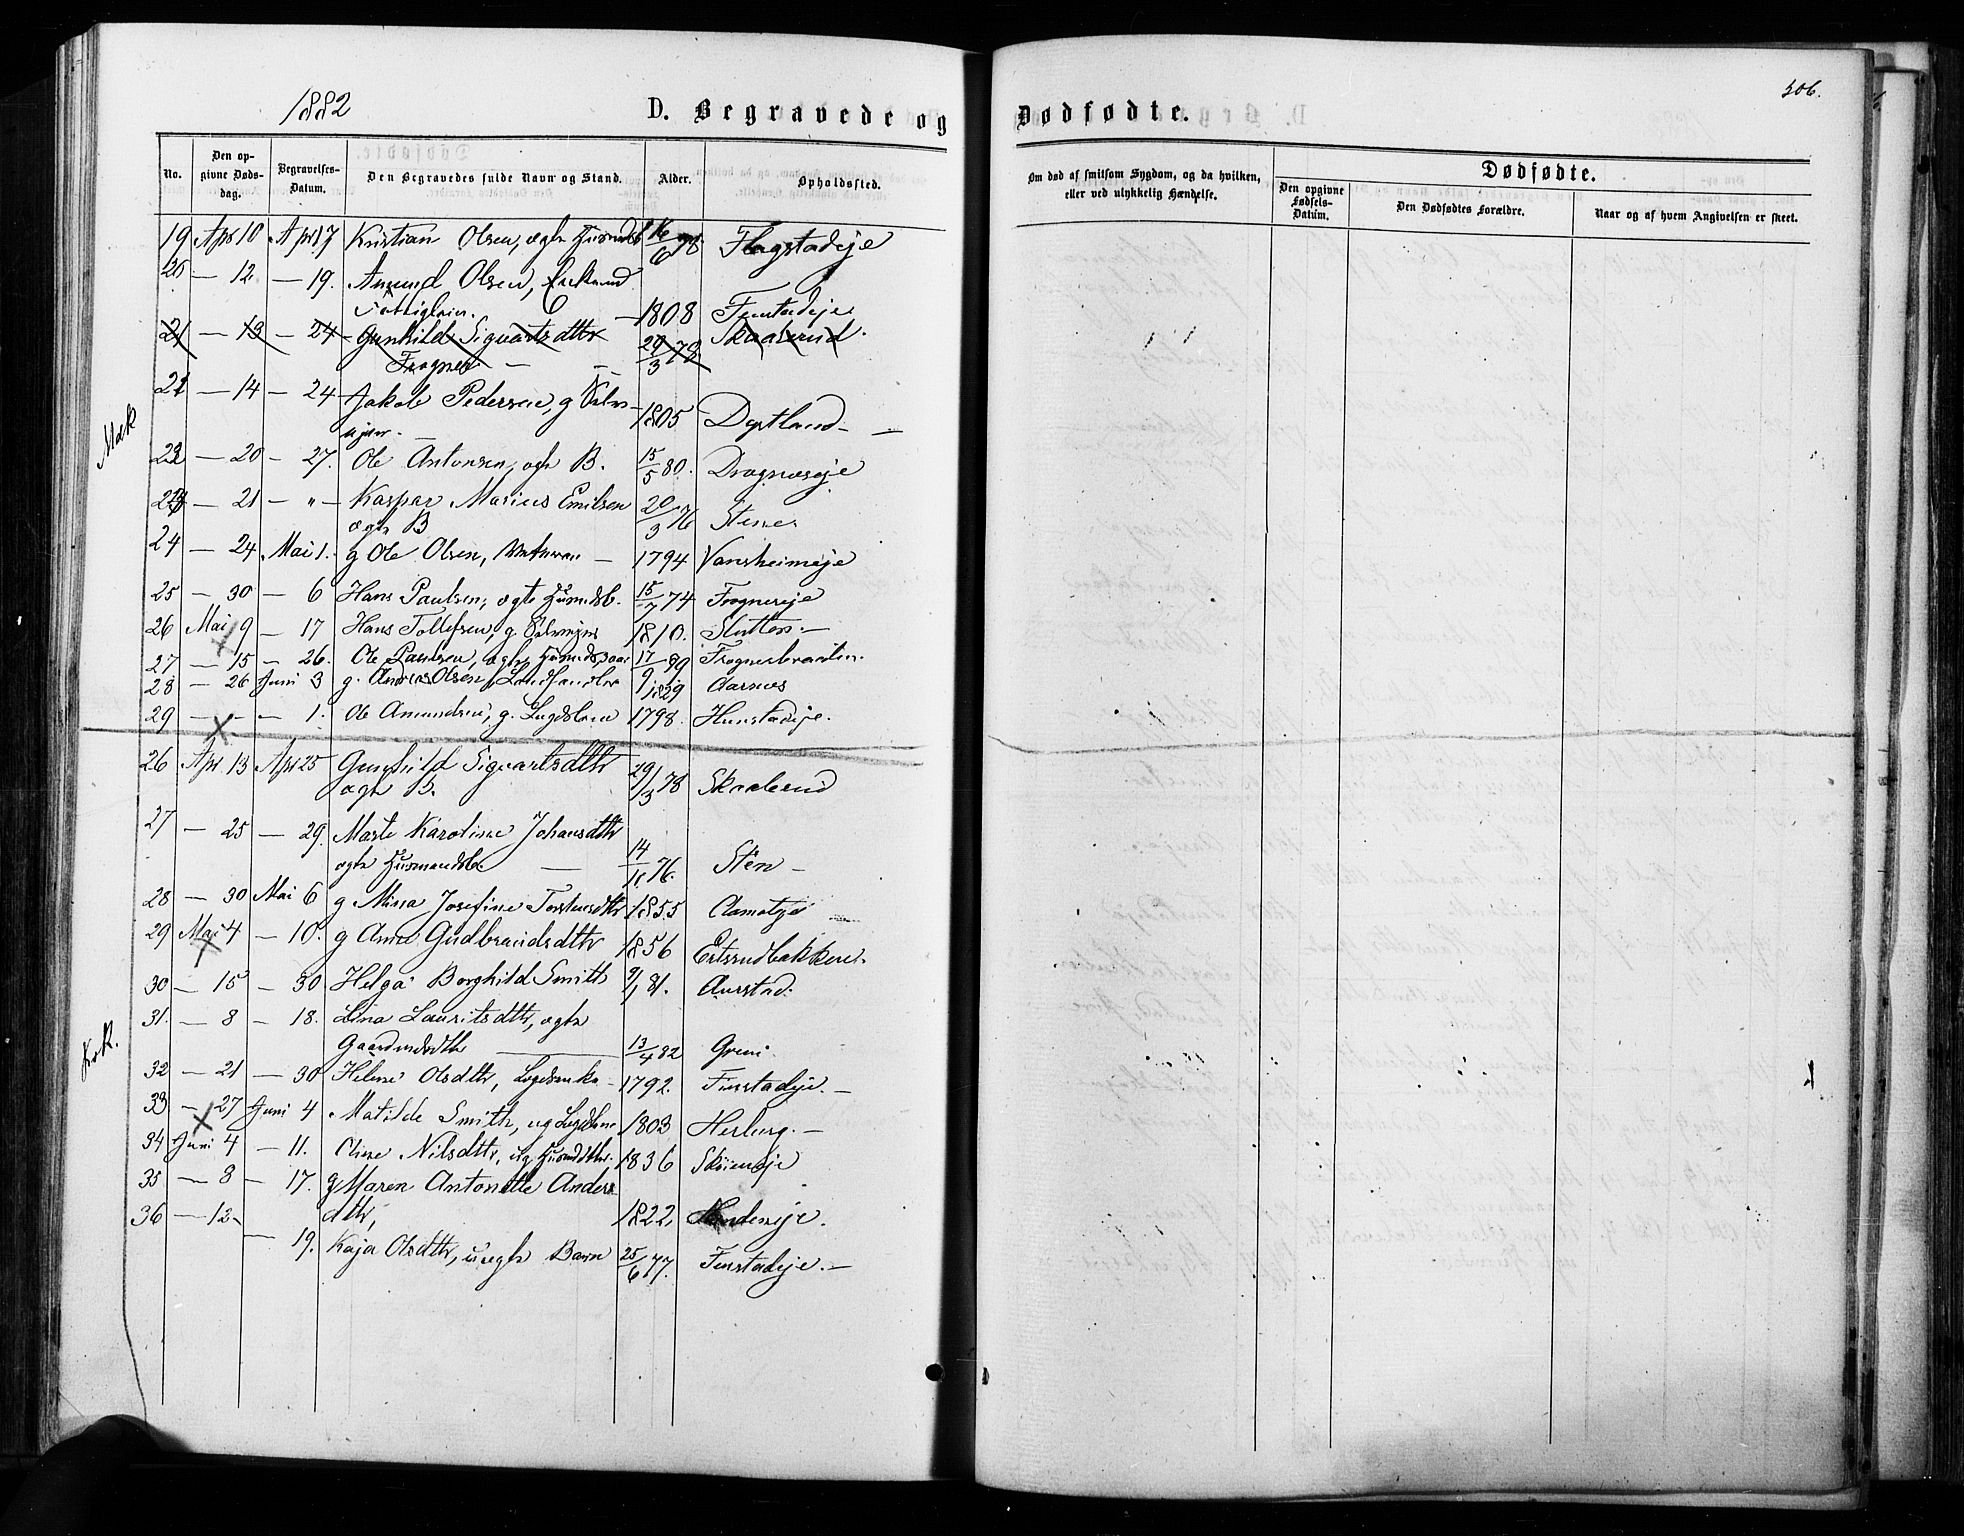 1882
D. Begravede og Dødfødte.
306.
No. Den opgivne Dødsdag. Begravelses-Datum. Den Begravedes fulde Navn og Stand. Alder. Opholdssted.
Om død af smitsom Sygdom, og da hvilken, eller ved ulykkelig Hændelse.
Dødfødte.
Den opgivne Fødsels-Datum. Den Dødfødtes Forældre. Naar og af hvem Angivelsen er skeet.
19 Apr 10 Apr 17 Kristian Olsen, ægte 16/6 78 Flagstadeje
20 — 12 — 19. Amund Olsen, Enkemand
Fattiglem. — 1808 Finstadeje
21 — 13 — 24 Gunhild Sigvartsdttr 29/3 78 Skaaberud
Frogner —
21 — 14 — 24 Jakob Pedersen, g Selv-
ejer — 1805 Dystland —
Mæk
22 — 20 — 27. Ole Antonsen, ægte B. 15/5 80. Dragnæseje
23 — 21 — „ — Kaspar Marius Emilsen 20/3 76 Stene
ægte B
24 — 24 Mai 1. g Ole Olsen, — 1794
25 — 30 — 6 Hans Paulsen, ægte Husmdsb. 15/7 74 Frognereje
26 Mai 9 — 17 Hans Tollefsen, g. Selvejer 1810. Slutten —
27 — 15 — 26. Ole Paulsen, ægte 17/9 80 Frognerbraaten
28 — 26 Juni 3 g. Andreas Olsen, Landhandler 1829 Aarnes
29 — - — 1. Ole Amundsen, g. Lægdslem 1798. Hunstadeje.
26 Apr 13 Apr 25 Gunhild Sigvartsdttr 29/3 78 Skaaberud
ægte B.
27 — 25 — 29. Marte Karoline Johansdttr
ægte Husmandsb. — 14/11 76. Sten —
28 — 30 Mai 6 g Mina Josefine Torstensdttr 1855 Aamoteje
29 Mai 4 — 10. g Anne Gudbrandsdttr 1856 Ertsrudbakken.
30 — 15 — 30 Helga Borghild Smith 9/1 81. Aurstad.
31. — 8 — 18. Lina Lauritsdttr, ægte
Gaardmdsdttr — 13/4 82 Greni
Kvk.
32 — 21 — 30 Helene Olsdttr, Lægdsenke 1792. Finstadeje. —
33 — 27 Juni 4 Matilde Smith, ug Lægdslem 1803 Herberg. —
34 Juni 4 — 11. Oline Nilsdttr, ug Husmdttr. 1836 Skøieneje
35 — 8 — 17. g Maren Antonette Anders
dttr, 1822,
36 — 12 — 19. Kaja Olsdttr, uægte Barn 25/6 77. Finstadeje. —